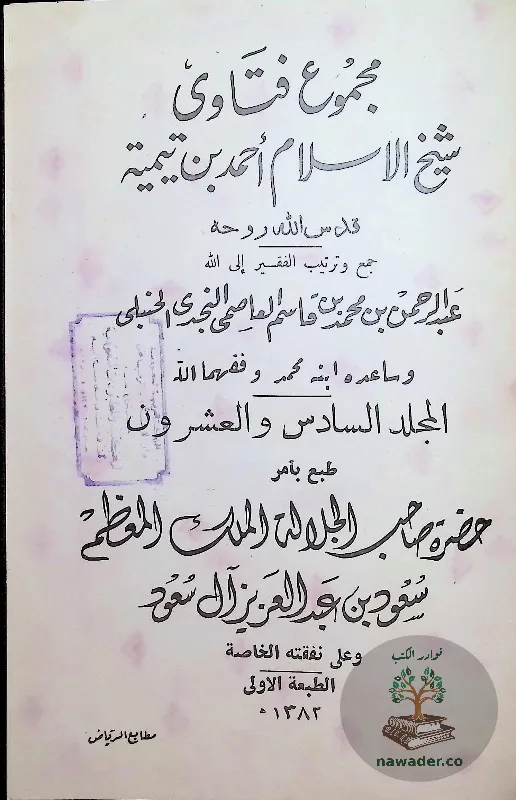 مجموع فتاوى
شيخ الاسلام أحمد بن تيمية
قدس الله روحه
جمع وترتيب الفقير إلى الله
عبد الرحمن بن محمد بن قاسم العاصمي النجدي الحنبلي
وساعده ابنه محمد وفقهما الله
المجلد السادس والعشرون
طبع بأمر
حضرة صاحب الجلالة الملك المعظم
سعود بن عبد العزيز آل سعود
وعلى نفقته الخاصة
الطبعة الاولى
١٣٨٢ ه
مطابع الرياض
نوادر الكتب
nawader.co